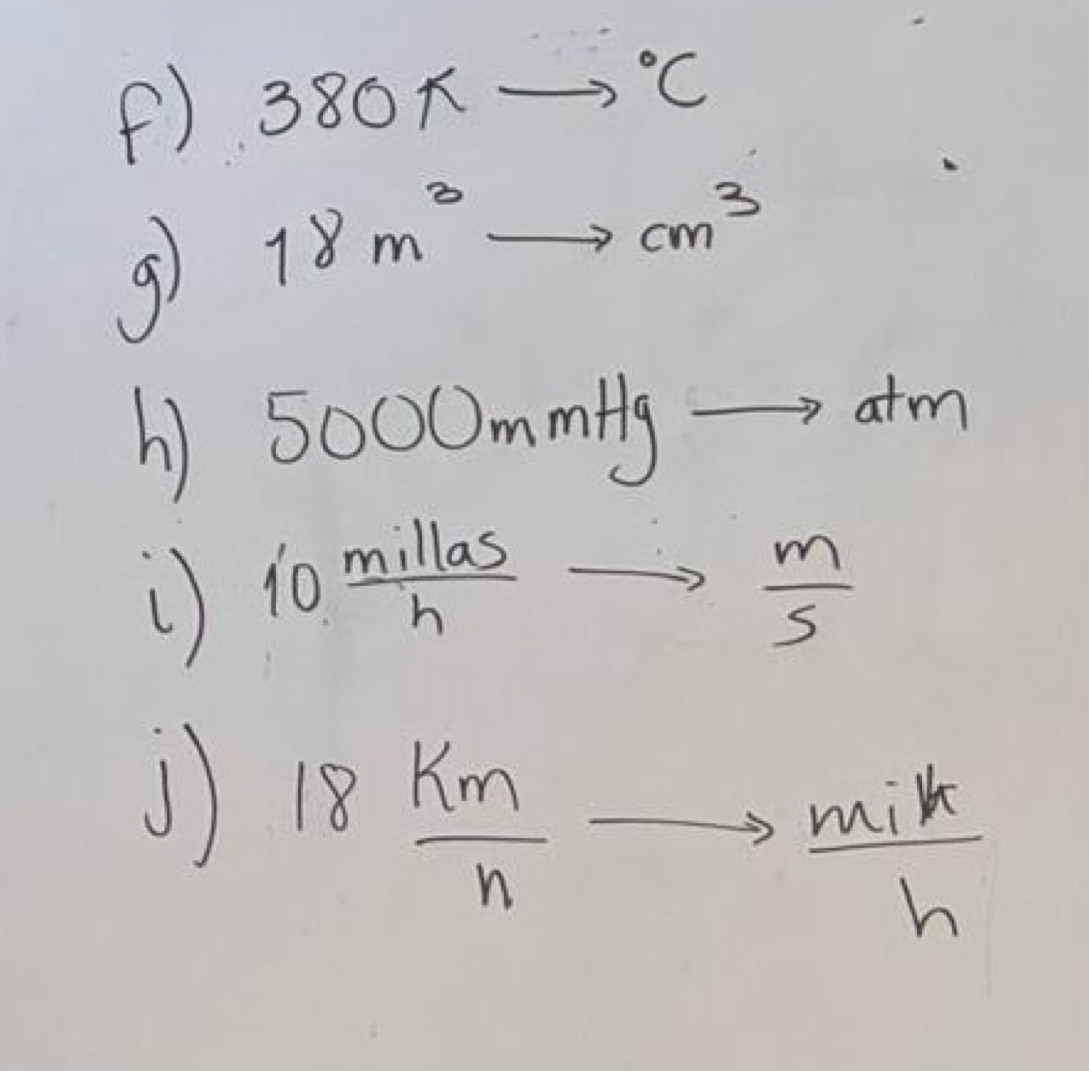 f) 380 K → °C
g) 18 m³ → cm³
h) 5000 mmHg → atm
i) 10 millas/h → m/s
j) 18 Km/h → /h